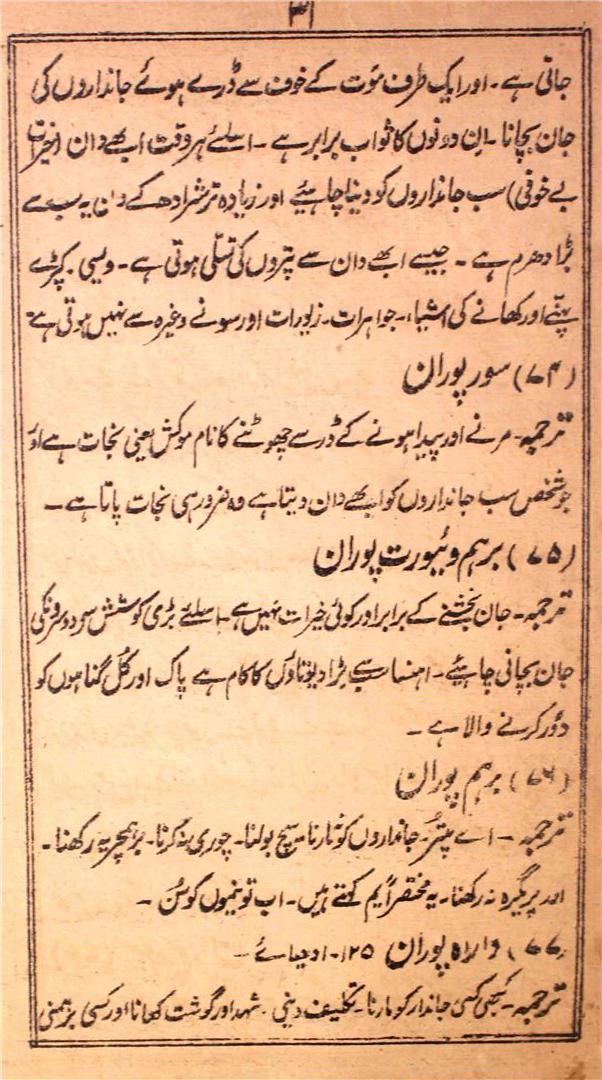 ۳۱
جاتی ہے۔ اور ایک طرف موت کے خوف سے ڈرے ہوئے جانداروں کی
جان بچانا۔ ان دونوں کا ثواب برابر ہے۔ اسلئے ہر وقت ابھے دان (خیرات
بے خوفی) سب جانداروں کو دینا چاہیئے اور زیادہ تر شرادھ کے دن یہ سب سے
بڑا دھرم ہے۔ جیسے ابھے دان سے پتروں کی تسلّی ہوتی ہے۔ ویسی کپڑے
پہننے اور کھانے کی اشیاء۔ جواہرات۔ زیورات اور سونے وغیرہ سے نہیں ہوتی ہے۔
(۷۴) سور پوران
ترجمہ۔ مرنے اور پیدا ہونے کے ڈر سے چھوٹنے کا نام موکش یعنی نجات ہے اور
جو شخص سب جانداروں کو ابھے دان دیتا ہے وہ ضرور ہی نجات پاتا ہے۔
(۷۵) برہم ویبورت پوران
ترجمہ۔ جان بخشنے کے برابر اور کوئی خیرات نہیں ہے۔ اسلئے بڑی کوشش سے دوسرونکی
جان بچانی چاہیئے۔ اہنسا سب سے بڑا دیوتاؤں کا کام ہے پاک اور کل گناہوں کو
دور کرنے والا ہے۔
(۷۶) برہم پوران
ترجمہ۔ اے پتر۔ جانداروں کو نہ مارنا۔ سچ بولنا۔ چوری نہ کرنا۔ برہمچریہ رکھنا۔
اور پریگرہ نہ رکھنا۔ یہ مختصراً یم کہتے ہیں۔ اب تو نیموں کو سُن۔
(۷۷) واراہ پوران ۱۲۵۔ ادھیائے۔
ترجمہ۔ کبھی کسی جاندار کو مارنا۔ تکلیف دینی۔ شہد اور گوشت کھانا اور کسی برہمنی